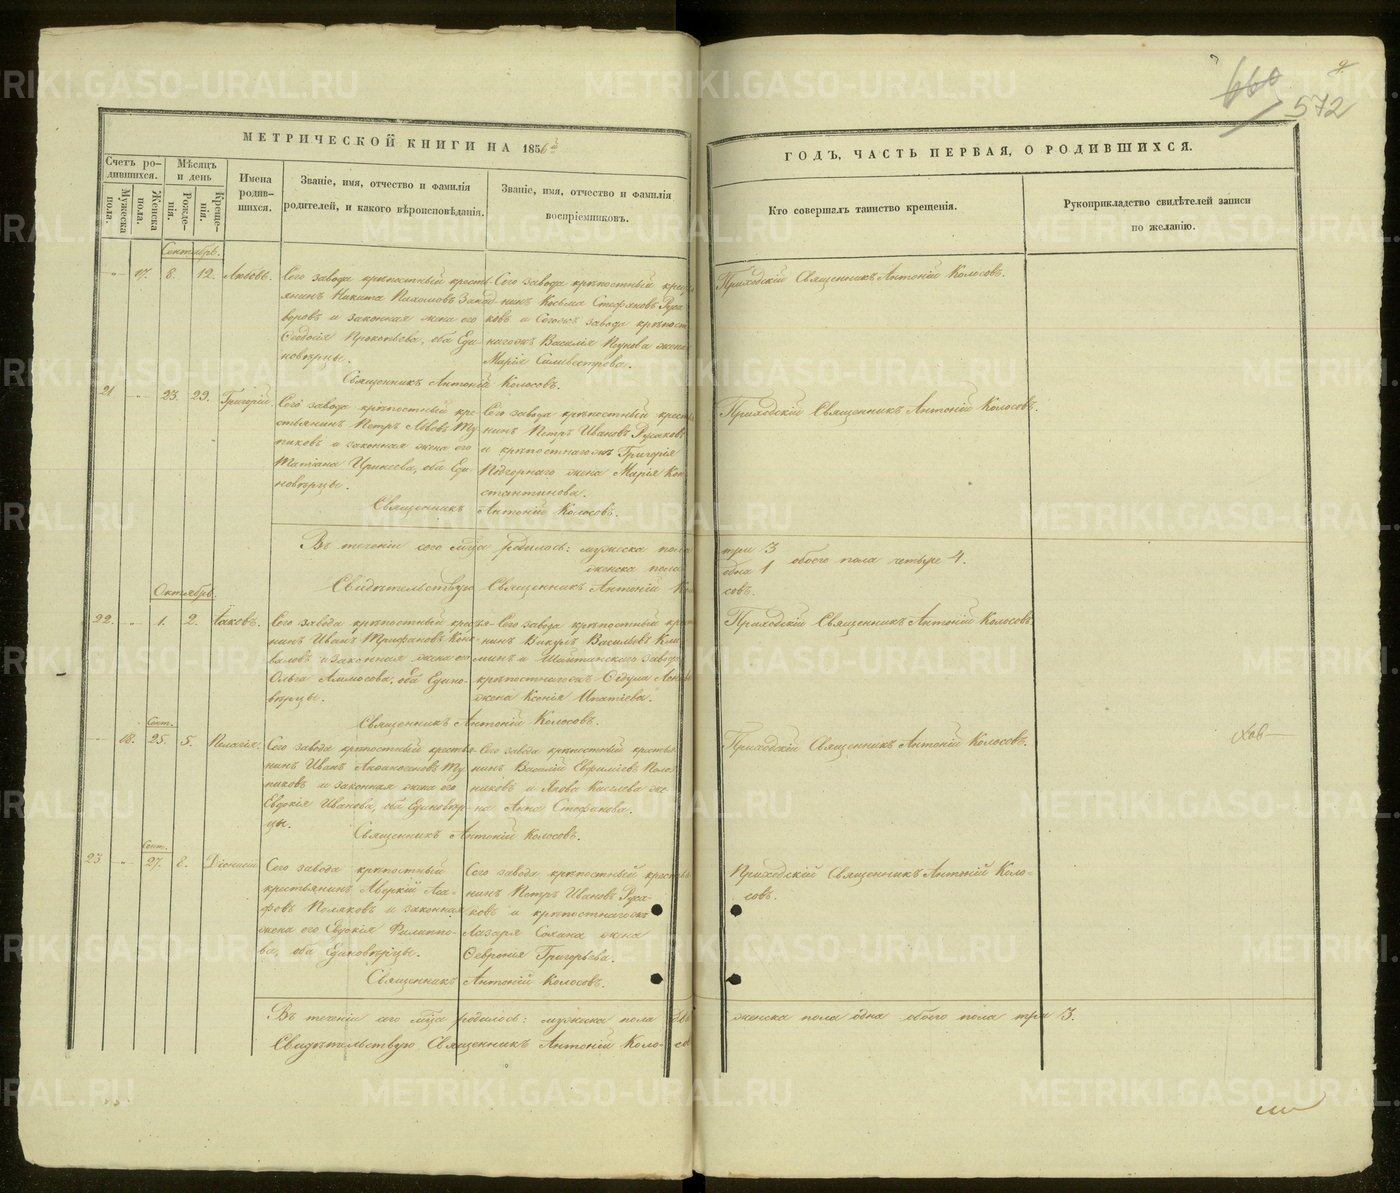 660
9
572
МЕТРИЧЕСКОЙ КНИГИ НА 1856й
ГОДЪ, ЧАСТЬ ПЕРВАЯ, О РОДИВШИХСЯ.
Счетъ родившихся.
Мужеска пола.
Женска пола.
Мѣсяцъ и день
Рожденія.
Крещенія.
Имена родившихся.
Званіе, имя, отчество и фамилія
родителей, и какого вѣроисповѣданія.
Званіе, имя, отчество и фамилія
воспріемниковъ.
Кто совершалъ таинство крещенія.
Рукоприкладство свидѣтелей записи
по желанію.
Сентябрь.
" 17. 8. 12. Любовь.
Сего завода крѣпостный кресть-
янинъ Никита Пахомовъ
и законная жена его
Ѳеодосія Прокопьева, оба Еди-
новѣрцы.
Сего завода крѣпостный крестья-
нинъ Козьма Стефановъ Руса-
ковъ и Сегожъ завода крѣпост-
нагожъ Василія жена
Марія Силивестрова.
Приходскій Священникъ Антоній Колосовъ.
Священникъ Антоній Колосовъ.
21 " 23. 29. Григорій
Сего завода крѣпостный кре-
стьянинъ Петръ Львовъ Ту-
пиковъ и законная жена его
Татіана Иринеева, оба Еди-
новѣрцы.
Сего завода крѣпостный крестья-
нинъ Петръ Ивановъ Русаковъ
и крѣпостнагожъ Григорія
Подгорнаго жена Марія Кон-
стантинова.
Приходскій Священникъ Антоній Колосовъ.
Священникъ Антоній Колосовъ.
Въ теченіи сего м͠ца родилось: мужеска пола три 3
женска пола одна 1 обоего пола четыре 4.
Свидѣтельствую Священникъ Антоній Колосовъ.
Октябрь
22. " 1. 2. Іаковъ.
Сего завода крѣпостный крестья-
нинъ Иванъ Трифановъ Коно-
валовъ и законная жена его
Ольга Аммосова, оба Едино-
вѣрцы.
Сего завода крѣпостный крестья-
нинъ Викулъ Васильевъ Кли-
минъ и Шайтанскаго завода
крѣпостнагожъ Ѳедула
жена Ксенія Ипатіева.
Приходскій Священникъ Антоній Колосовъ.
Священникъ Антоній Колосовъ.
Сент.
" 18. 25. 5. Пелагія.
Сего завода крѣпостный крестья-
нинъ Иванъ Аѳиногеновъ Ту-
пиковъ и законная жена его
Евдокія Иванова, оба Единовѣр-
цы.
Сего завода крѣпостный крестья-
нинъ Василій Евфиміевъ Поля-
ковъ и Якова Киселева же-
на Анна Стефанова.
Приходскій Священникъ Антоній Колосовъ.
Священникъ Антоній Колосовъ.
Сент.
23 " 27. 8. Діонисій
Сего завода крѣпостный
крестьянинъ Аверкій Ага-
фовъ Поляковъ и законная
жена его Евдокія Филиппо-
ва, оба Единовѣрцы.
Сего завода крѣпостный крестья-
нинъ Петръ Ивановъ Руса-
ковъ и крѣпостнагожъ
Лазаря Сохина жена
Ѳевронія Григорьева.
Приходскій Священникъ Антоній Коло-
совъ.
Священникъ Антоній Колосовъ.
Въ теченіи сего м͠ца родилось: мужеска пола два женска пола одна обоего пола три 3.
Свидѣтельствую Священникъ Антоній Колосовъ
METRIKI.GASO-URAL.RU